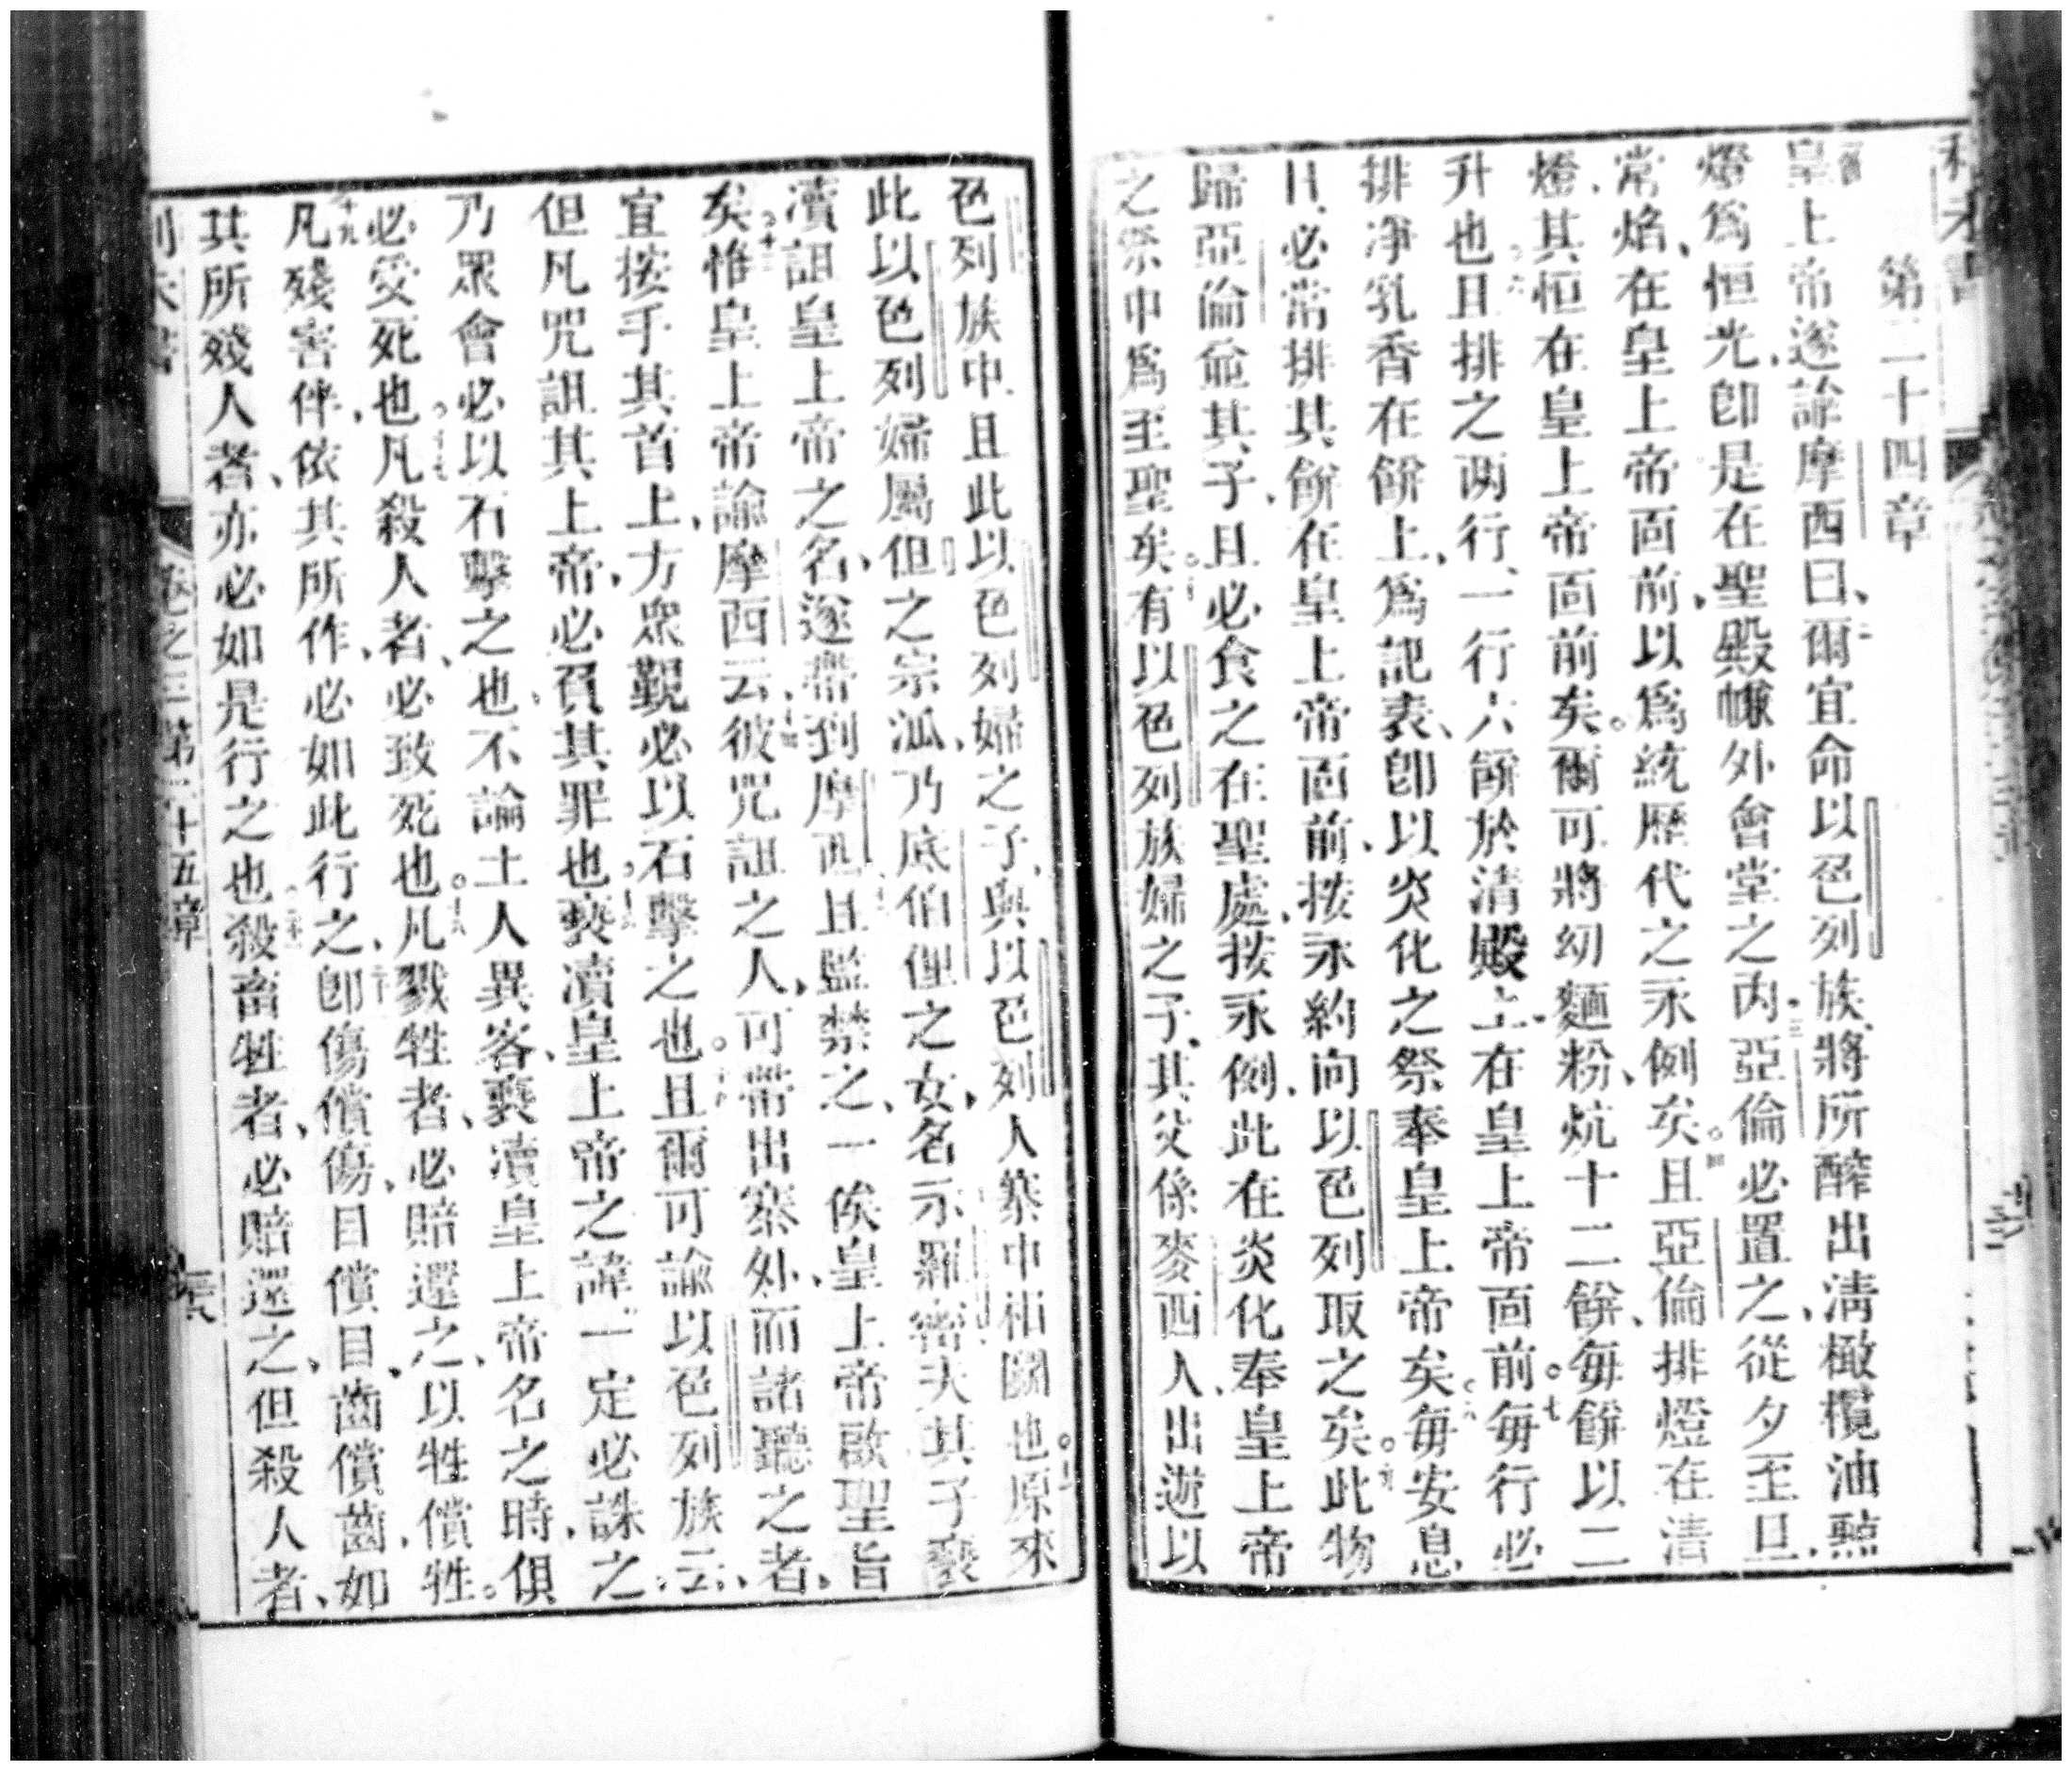 第二十四章
皇上帝遂諭摩西曰、爾宜命以色列族、將所醡出清橄欖油㸃
燈爲恒光、卽是在聖殿幪外會堂之內、亞倫必置之、從夕至旦、
常焰、在皇上帝面前、以爲統歷代之永例矣。且亞倫排燈在清
燈、其恒在皇上帝面前矣。爾可將幼麵粉、炕十二餠、每餠以二
升也。且排之兩行、一行六餠於清殿上、在皇上帝面前。每行必
排淨乳香在餠上、爲記表、卽以炎化之祭奉皇上帝矣。每安息
日、必常排其餠在皇上帝面前、按永約向以色列取之矣。此物
歸亞倫並其子、且必食之在聖處、按永例、此在炎化奉皇上帝
之祭中爲至聖矣。有以色列族婦之子、其父係麥西人、出遊以
色列族中、且此以色列婦之子、與以色列人寨中相鬬也。原來
此以色列婦屬但之宗派、乃底伯俚之女、名示羅密夫、其子褻
瀆詛皇上帝之名、遂帶到摩西、且監禁之、一俟皇上帝啟聖旨
矣。惟皇上帝諭摩西云、彼咒詛之人、可帶出寨外、而諸聽之者、
宜按手其首上、方眾觀必以石擊之也。且爾可諭以色列族云、
但凡咒詛其上帝、必負其罪也。褻瀆皇上帝之諱、一定必誅之、
乃眾會必以石擊之也、不論土人異客、褻瀆皇上帝名之時、俱
必受死也。凡殺人者、必致死也。凡戮牲者、必賠還之、以牲償牲。
凡殘害伴、依其所作、必如此行之、卽傷償傷、目償目、齒償齒、如
其所殘人者、亦必如是行之也。殺畜牲者、必賠還之、但殺人者、
卷之三第二十五章